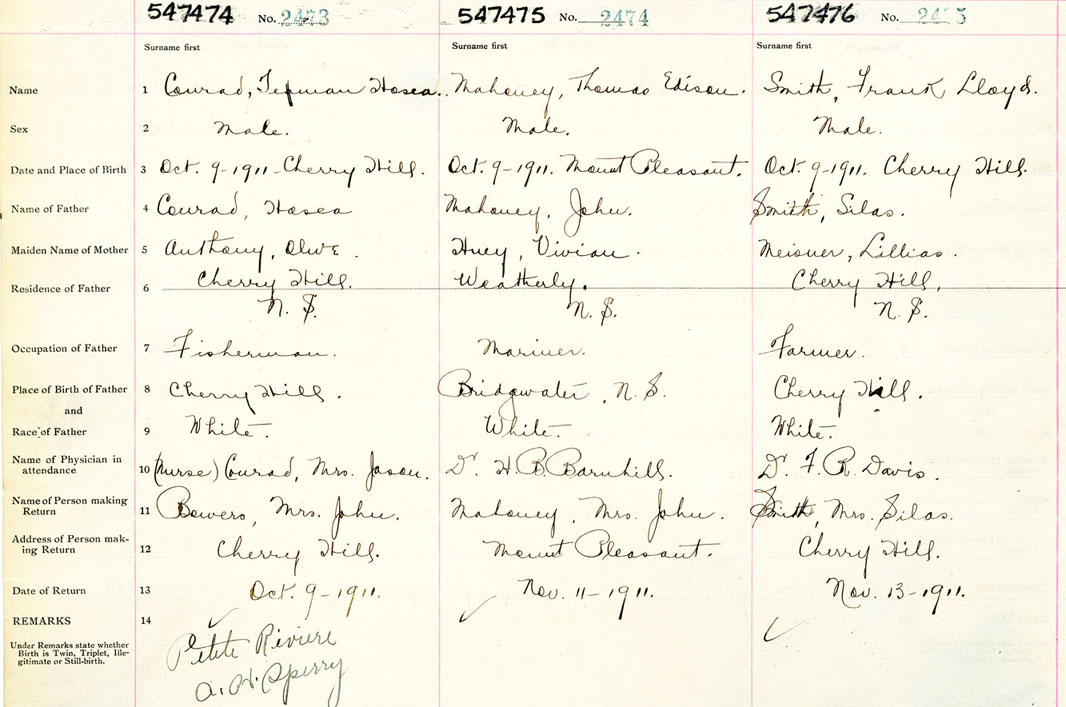 547474 No. 2473 547475 No. 2474 547476 No.
Surname first Surname first Surname first
Name 1 Conrad, Hosea. Mahoney, Thomas Edison. Smith, Frank Lloyd.
Sex 2 Male. Male. Male.
Date and Place of Birth 3 Oct. 9-1911-Cherry Hill. Oct. 9-1911. Mount Pleasant. Oct. 9-1911. Cherry Hill.
Name of Father 4 Conrad, Hosea Mahoney, John. Smith, Silas.
Maiden Name of Mother 5 Anthony, Olive. Huey, Vivian. Meisner, Lillias.
Cherry Hill. Weatherly. Cherry Hill,
Residence of Father 6
N.S. N.S. N.S.
Occupation of Father 7 Fisherman. Mariner. Farmer.
Place of Birth of Father 8 Cherry Hill. Bridgwater, N.S. Cherry Hill.
and
Race of Father 9 White. White. White.
Name of Physician in
attendance 10 (Nurse) Conrad, Mrs. Jason. Dr. H.B. Barnhill. Dr. F.R. Davis.
Name of Person making
Return 11 Bowers, Mrs. John. Mahoney, Mrs. John. Smith, Mrs. Silas.
Address of Person mak-
ing Return 12 Cherry Hill. Mount Pleasant. Cherry Hill.
Date of Return 13 Oct. 9-1911. Nov. 11-1911. Nov. 13-1911.
REMARKS 14
Under Remarks state whether
Birth is Twin, Triplet, Ille-
gitimate or Still-birth.
Petite Riviere
A. H. Sperry